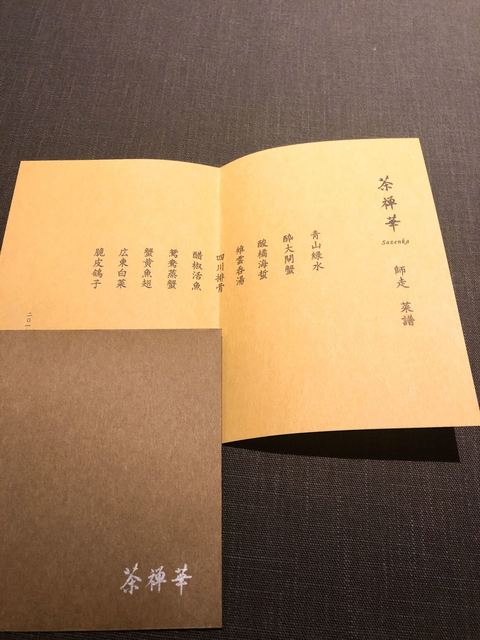 茶禅華
Sazenka
師走 菜譜
青山緑水
酔大閘蟹
酸橘海蜇
雉雲呑湯
四川排骨
醋椒活魚
鴛鴦蒸蟹
蟹黄魚翅
広東白菜
脆皮鴿子
二〇一
茶禅華